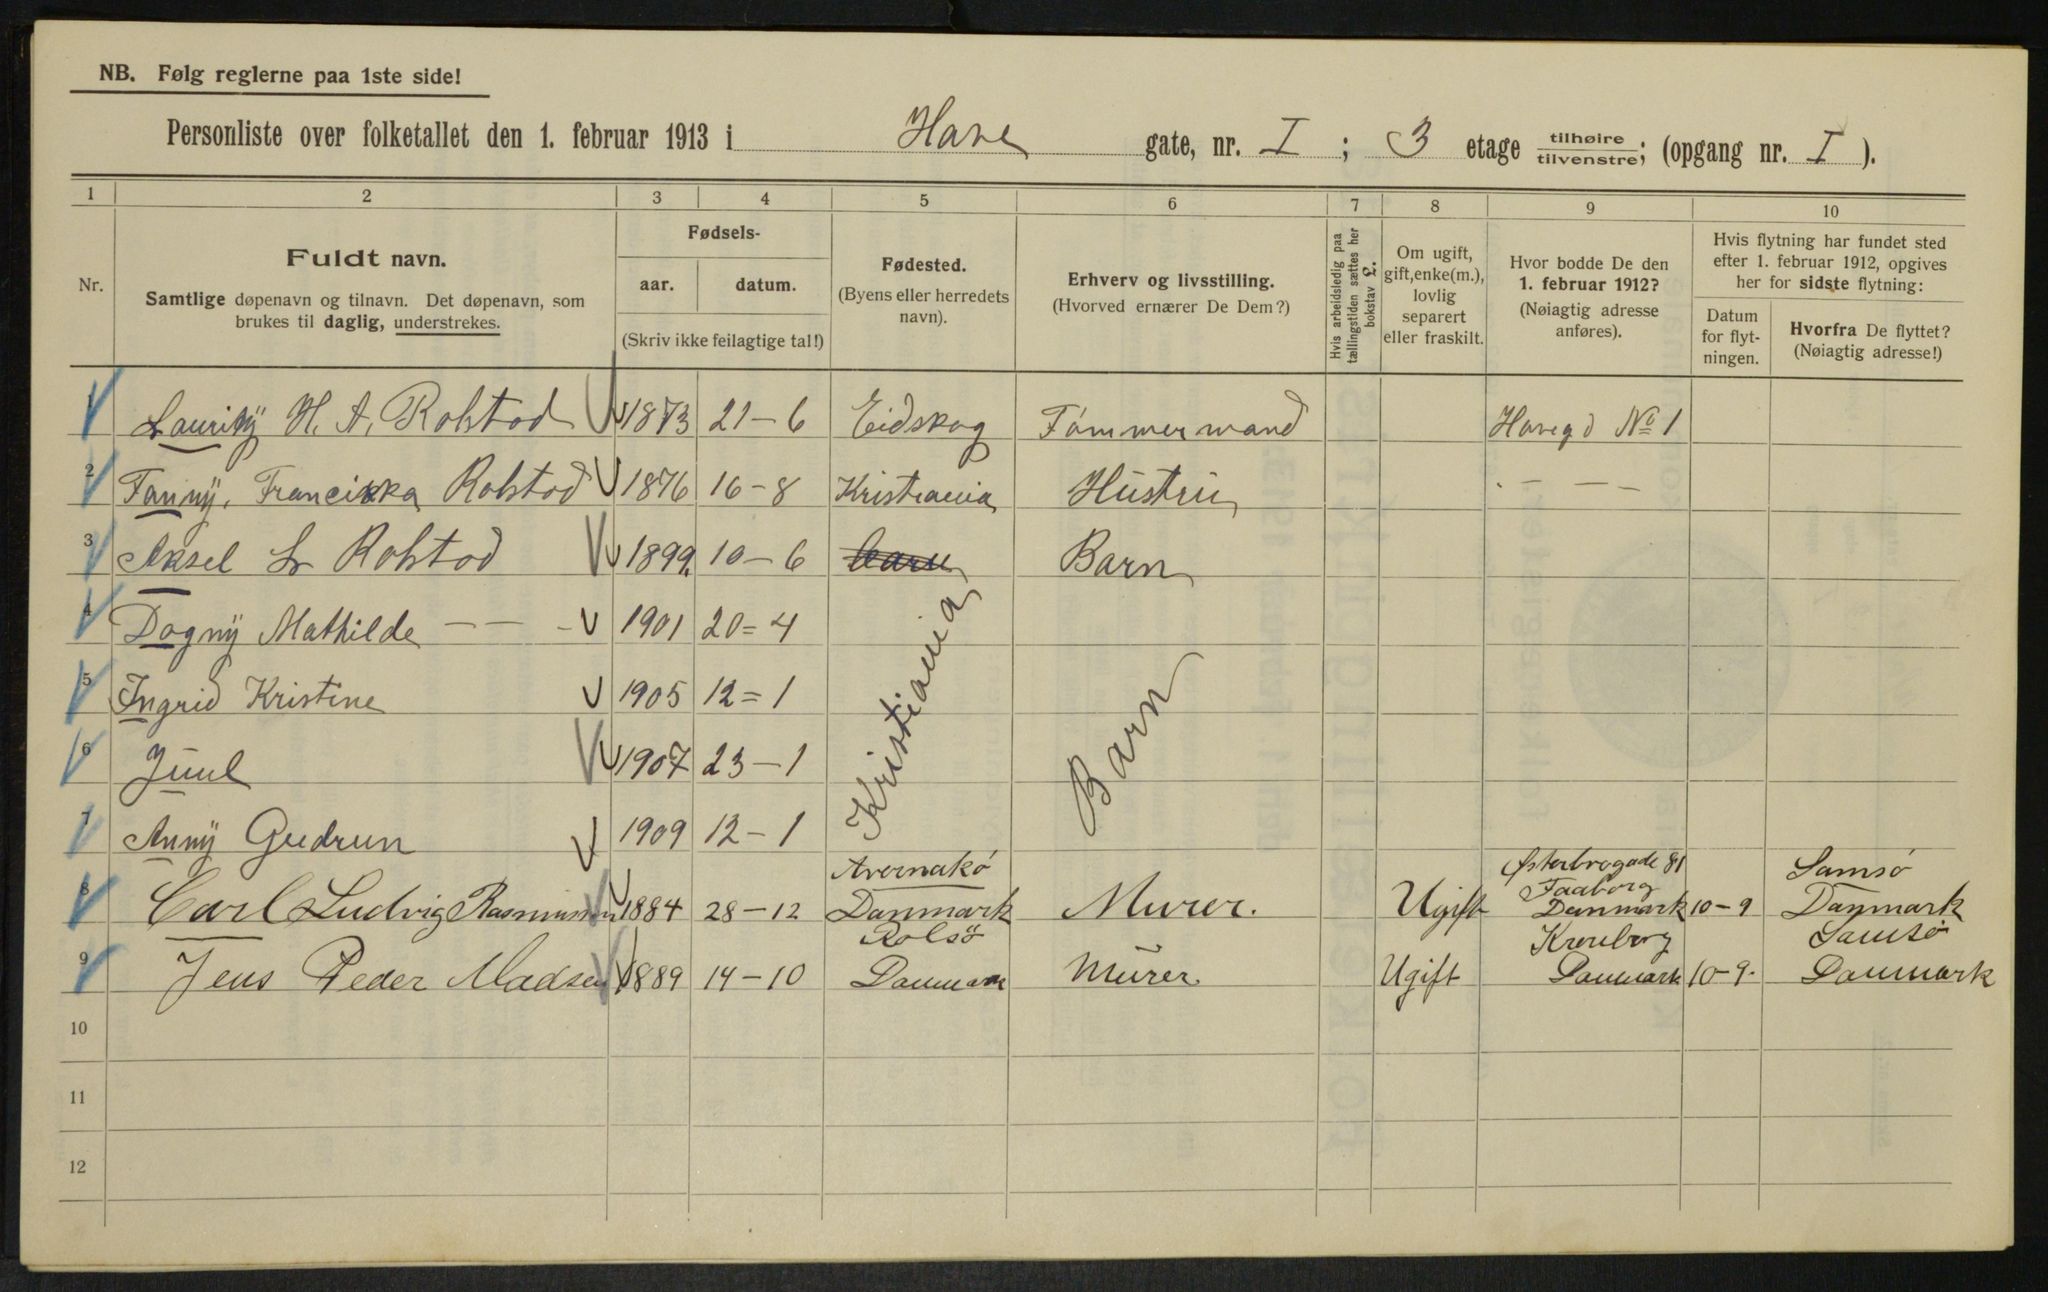 NB. Følg reglerne paa 1ste side!
Personliste over folketallet den 1. februar 1913 i Have gate, nr. I ; 3 etage tilhøire / tilvenstre; (opgang nr. I ).
1 2 3 4 5 6 7 8 9 10
Nr.
Fuldt navn.
Samtlige døpenavn og tilnavn. Det døpenavn, som
brukes til daglig, understrekes.
Fødsels-
aar. datum.
(Skriv ikke feilagtige tal!)
Fødested.
(Byens eller herredets
navn).
Erhverv og livsstilling.
(Hvorved ernærer De Dem?)
Hvis arbeidsledig paa
tællingstiden sættes her
bokstav L.
Om ugift,
gift, enke(m.),
lovlig
separert
eller fraskilt.
Hvor bodde De den
1. februar 1912?
(Nøiagtig adresse
anføres).
Hvis flytning har fundet sted
efter 1. februar 1912, opgives
her for sidste flytning:
Datum
for flyt-
ningen.
Hvorfra De flyttet?
(Nøiagtig adresse!)
1 H. A. Rolstad 1873 21-6 Eidskog Tømmermand Havegd No 1
2 Fanny, Franciska Rolstad 1876 16-8 Kristiania Hustru - — —
3 Aksel L Rolstad 1899. 10-6 Barn
4 Dagny Mathilde — — - 1901 20=4
5 Ingrid Kristine 1905 12=1
6 Juul 1907 23-1
7 Anny Gudrun 1909 12-1
Kristiania
Barn
Avernakö Østerbrogade 81 Samsø
Faaborg
8 Carl Ludvig Rasmussen 1884 28-12 Danmark Murer. Ugift Danmark 10-9 Danmark
Rolsö Kronborg Samsø
9 Jens Peder Madsen 1889 14-10 Danmark Murer Ugift Danmark 10-9. Danmark
10
11
12